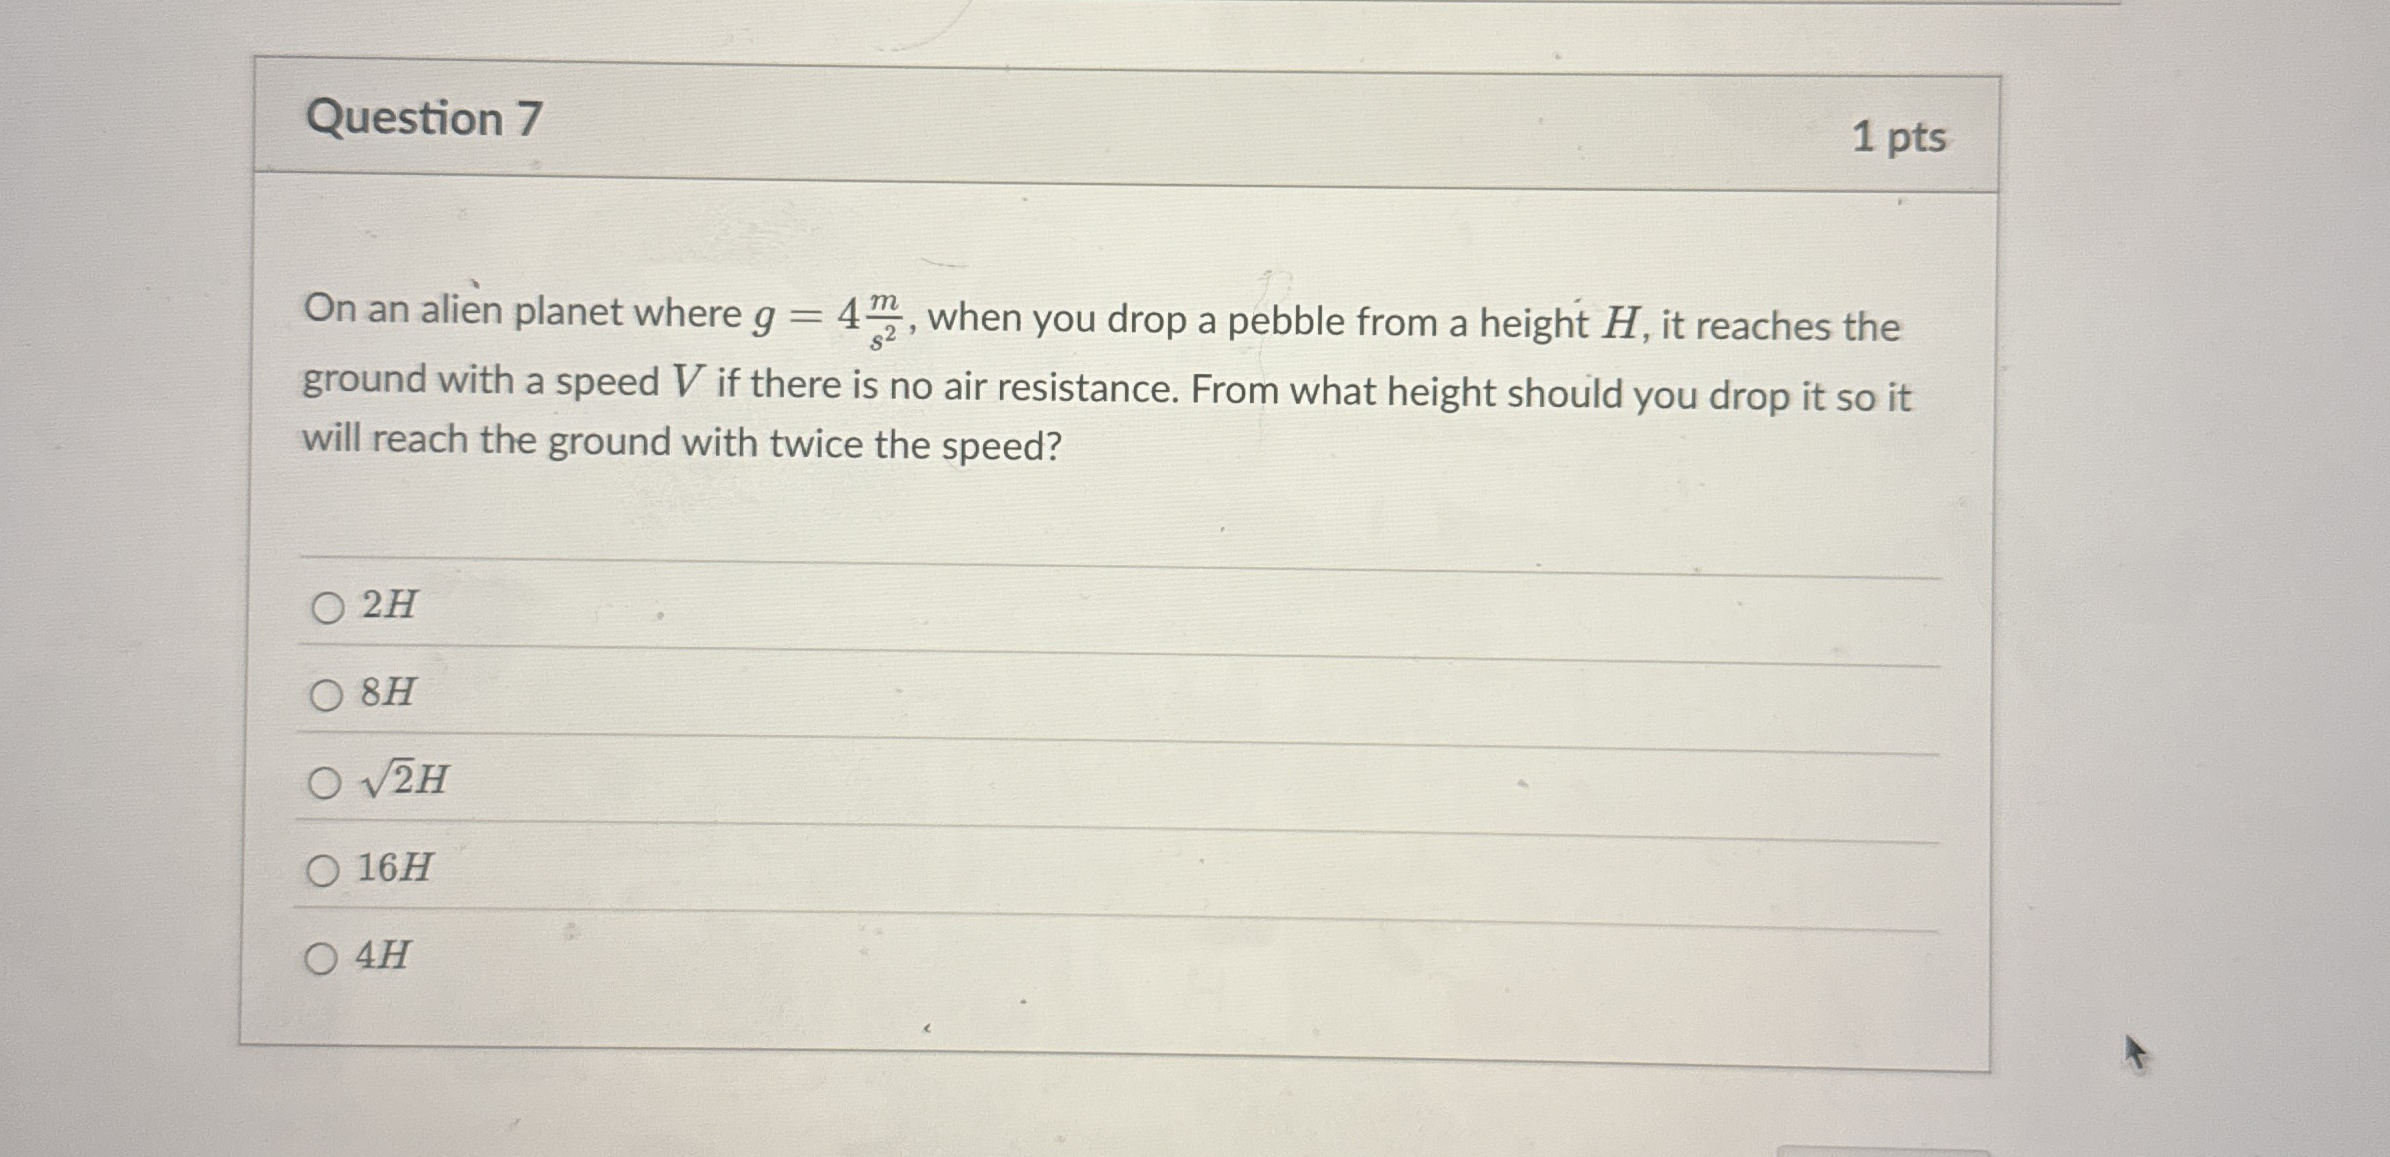 Question 7
1 pts
On an alien planet where g = 4 m/s², when you drop a pebble from a height H, it reaches the
ground with a speed V if there is no air resistance. From what height should you drop it so it
will reach the ground with twice the speed?
2H
8H
√2H
16H
4H